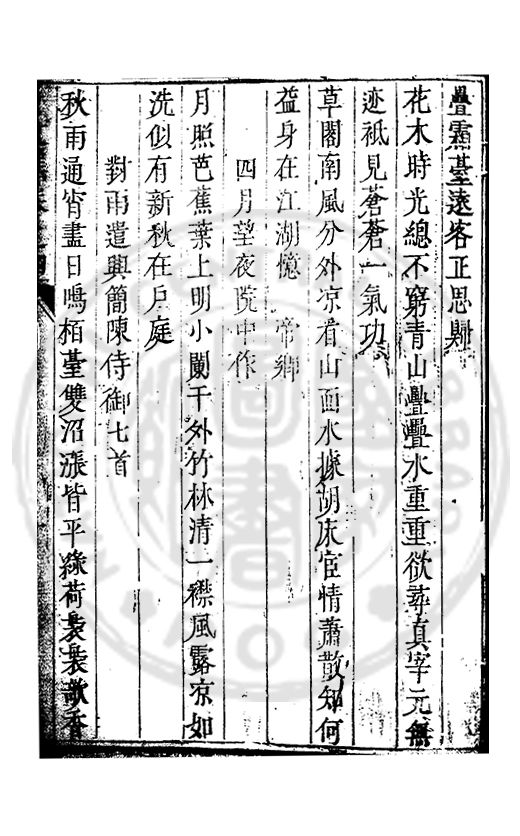 疊霱臺遠客正思歸
花木時光總不窮青山疊疊水重重欲尋真宰元無
迹祇見蒼蒼一氣功
草閣南風分外凉看山面水據胡床宦情蕭散知何
益身在江湖憶 帝鄉
四月望夜院中作
月照芭蕉葉上明小闌干外竹林清一襟風露凉如
洗似有新秋在戶庭
對雨遣興簡陳侍御七首
秋雨通宵盡日鳴栢臺雙沼漲皆平綠荷裊裊欹香